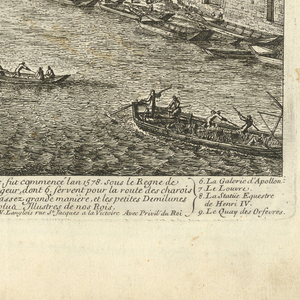 , fut commencé l'an 1578. sous le Regne de
geur, dont 6. servent pour la route des charois
assez grande maniere, et les petites Demilunes
Illustres de nos Rois.
N. Langlois rue St. Jacques a la Victoire Avec Privil. du Roi
6. La Galerie d'Apollon.
7. Le Louvre.
8. La Statue Equestre
de Henri IV.
9. Le Quay des Orfevres.